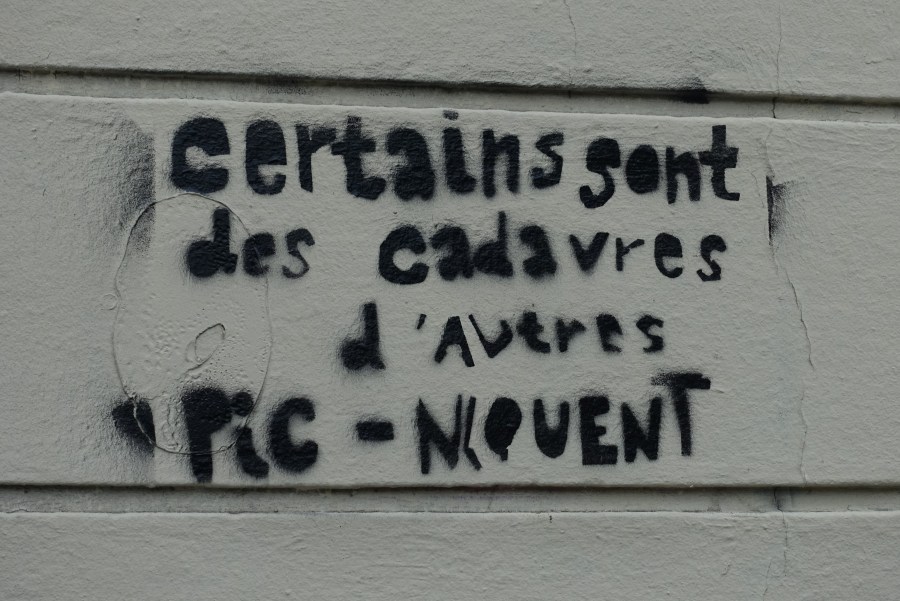 certains sont
des cadavres
d'Autres
PiC-NIQUENT